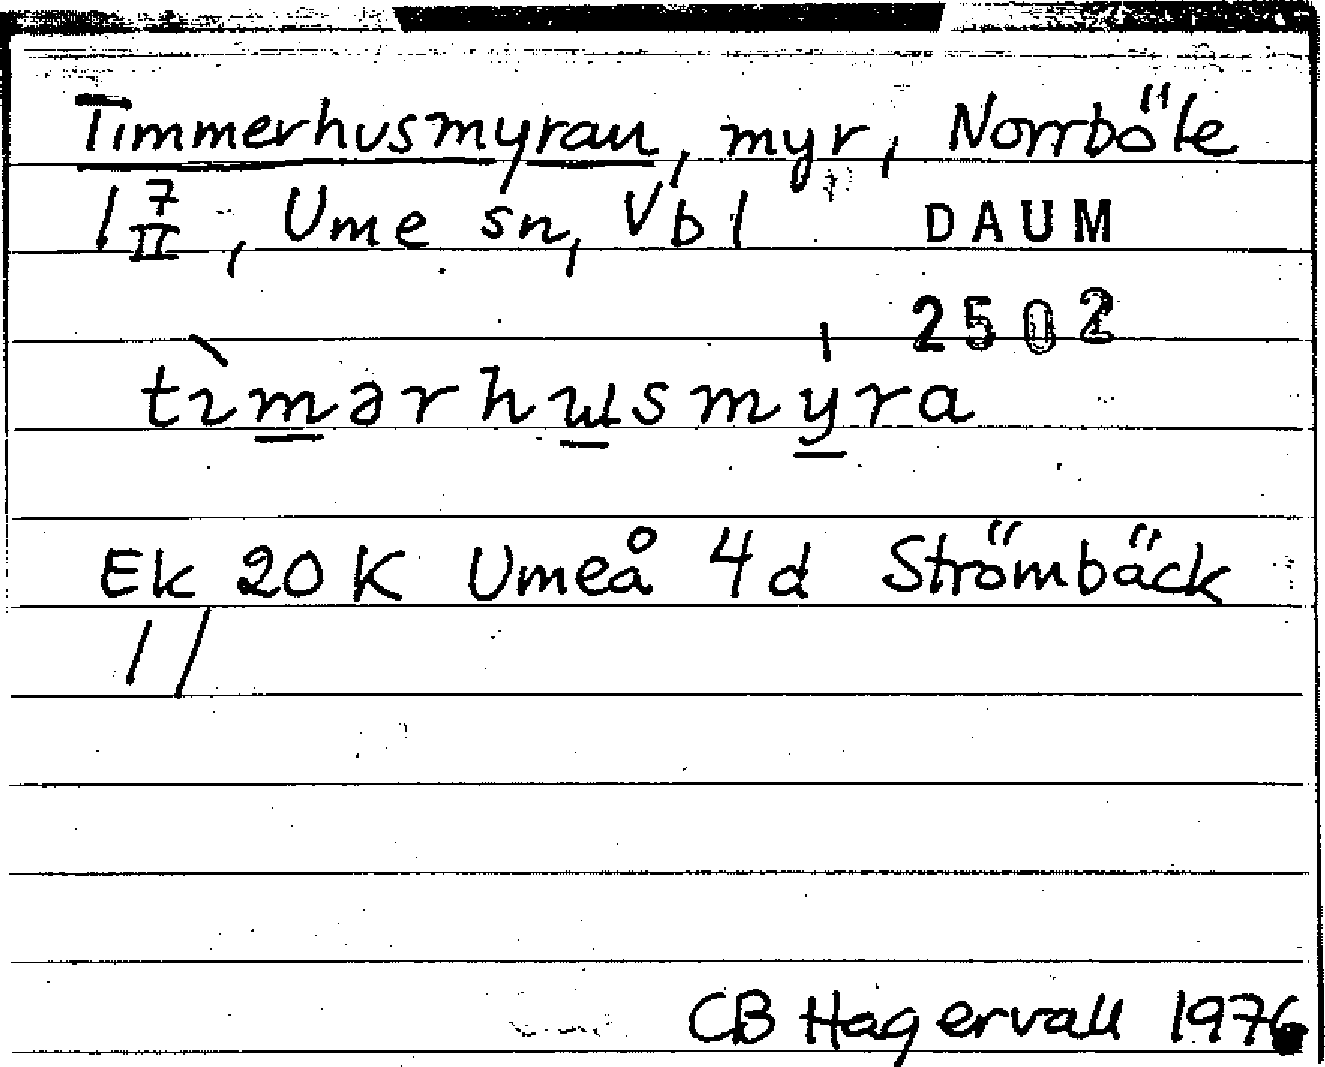 Timmerhusmyran, myr, Norrböle
1 7/II, Ume sn, Vbl DAUM
2502
tìmərhusmyra
Ek 20 K Umeå 4 d Strömbäck
1/
CB Hagervall 1976